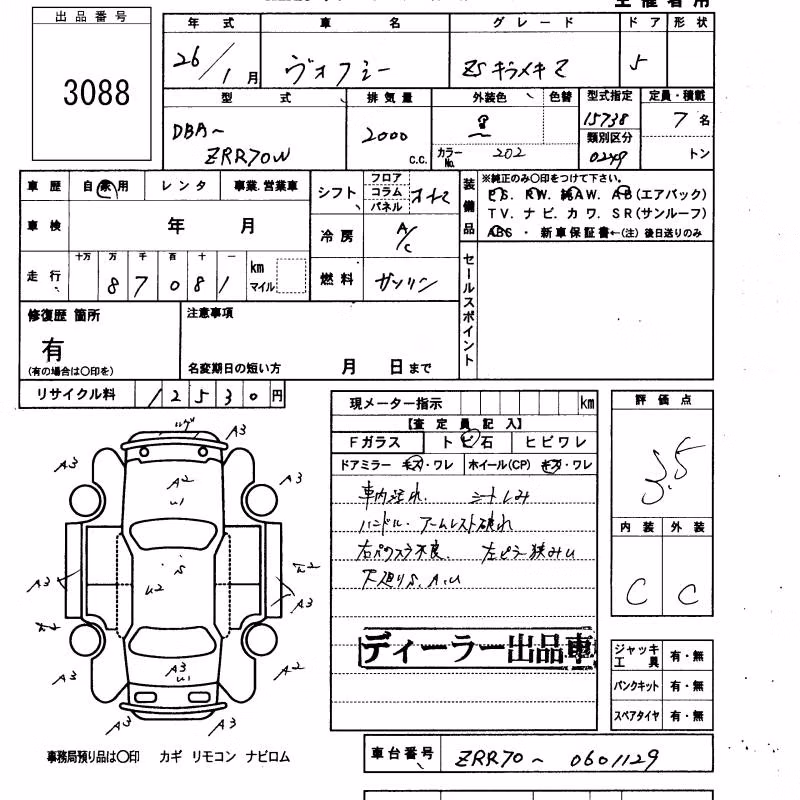 出品番号
3088
年式 車名 グレード ドア 形状
26/1月 ヴォクシー ZSキラメキZ 5
型式 排気量 外装色 色替 型式指定 定員・積載
DBA~ ZRR70W 2000 C.C. 15738 7名
カラーNo. 202 類別区分 0249 トン
車歴 自家用 レンタ 事業.営業車
車検 年 月
走行 十万 万 千 百 十 一 km マイル
8 7 0 8 1
シフト フロア コラム パネル オートマ
冷房 A/C
燃料 ガソリン
装備品 ※純正のみ○印をつけて下さい。
PS. PW. 純AW. AB(エアバック)
TV. ナビ. カワ. SR(サンルーフ)
ABS ・ 新車保証書←(注) 後日送りのみ
セールスポイント
修復歴 箇所
有
(有の場合は○印を)
注意事項
名変期日の短い方 月 日まで
リサイクル料 1 2 5 3 0 円
現メーター指示 km
【査定員記入】
Fガラス トビ石 ヒビワレ
ドアミラー キズ・ワレ ホイール(CP) キズ・ワレ
車内汚れ. シートしみ
ハンドル・アームレスト破れ
右パワスラ不良. 左ピラー狭みU
下廻りS. A.U
ディーラー出品車
評価点
3.5
内装 外装
C C
ジャッキ工具 有・無
パンクキット 有・無
スペアタイヤ 有・無
A3
A3
A3
A2
U1
S
U2
A3
A3
A3
U1
A3
A2
A3
A3
事務局預り品は○印 カギ リモコン ナビロム
車台番号 ZRR70~0601129